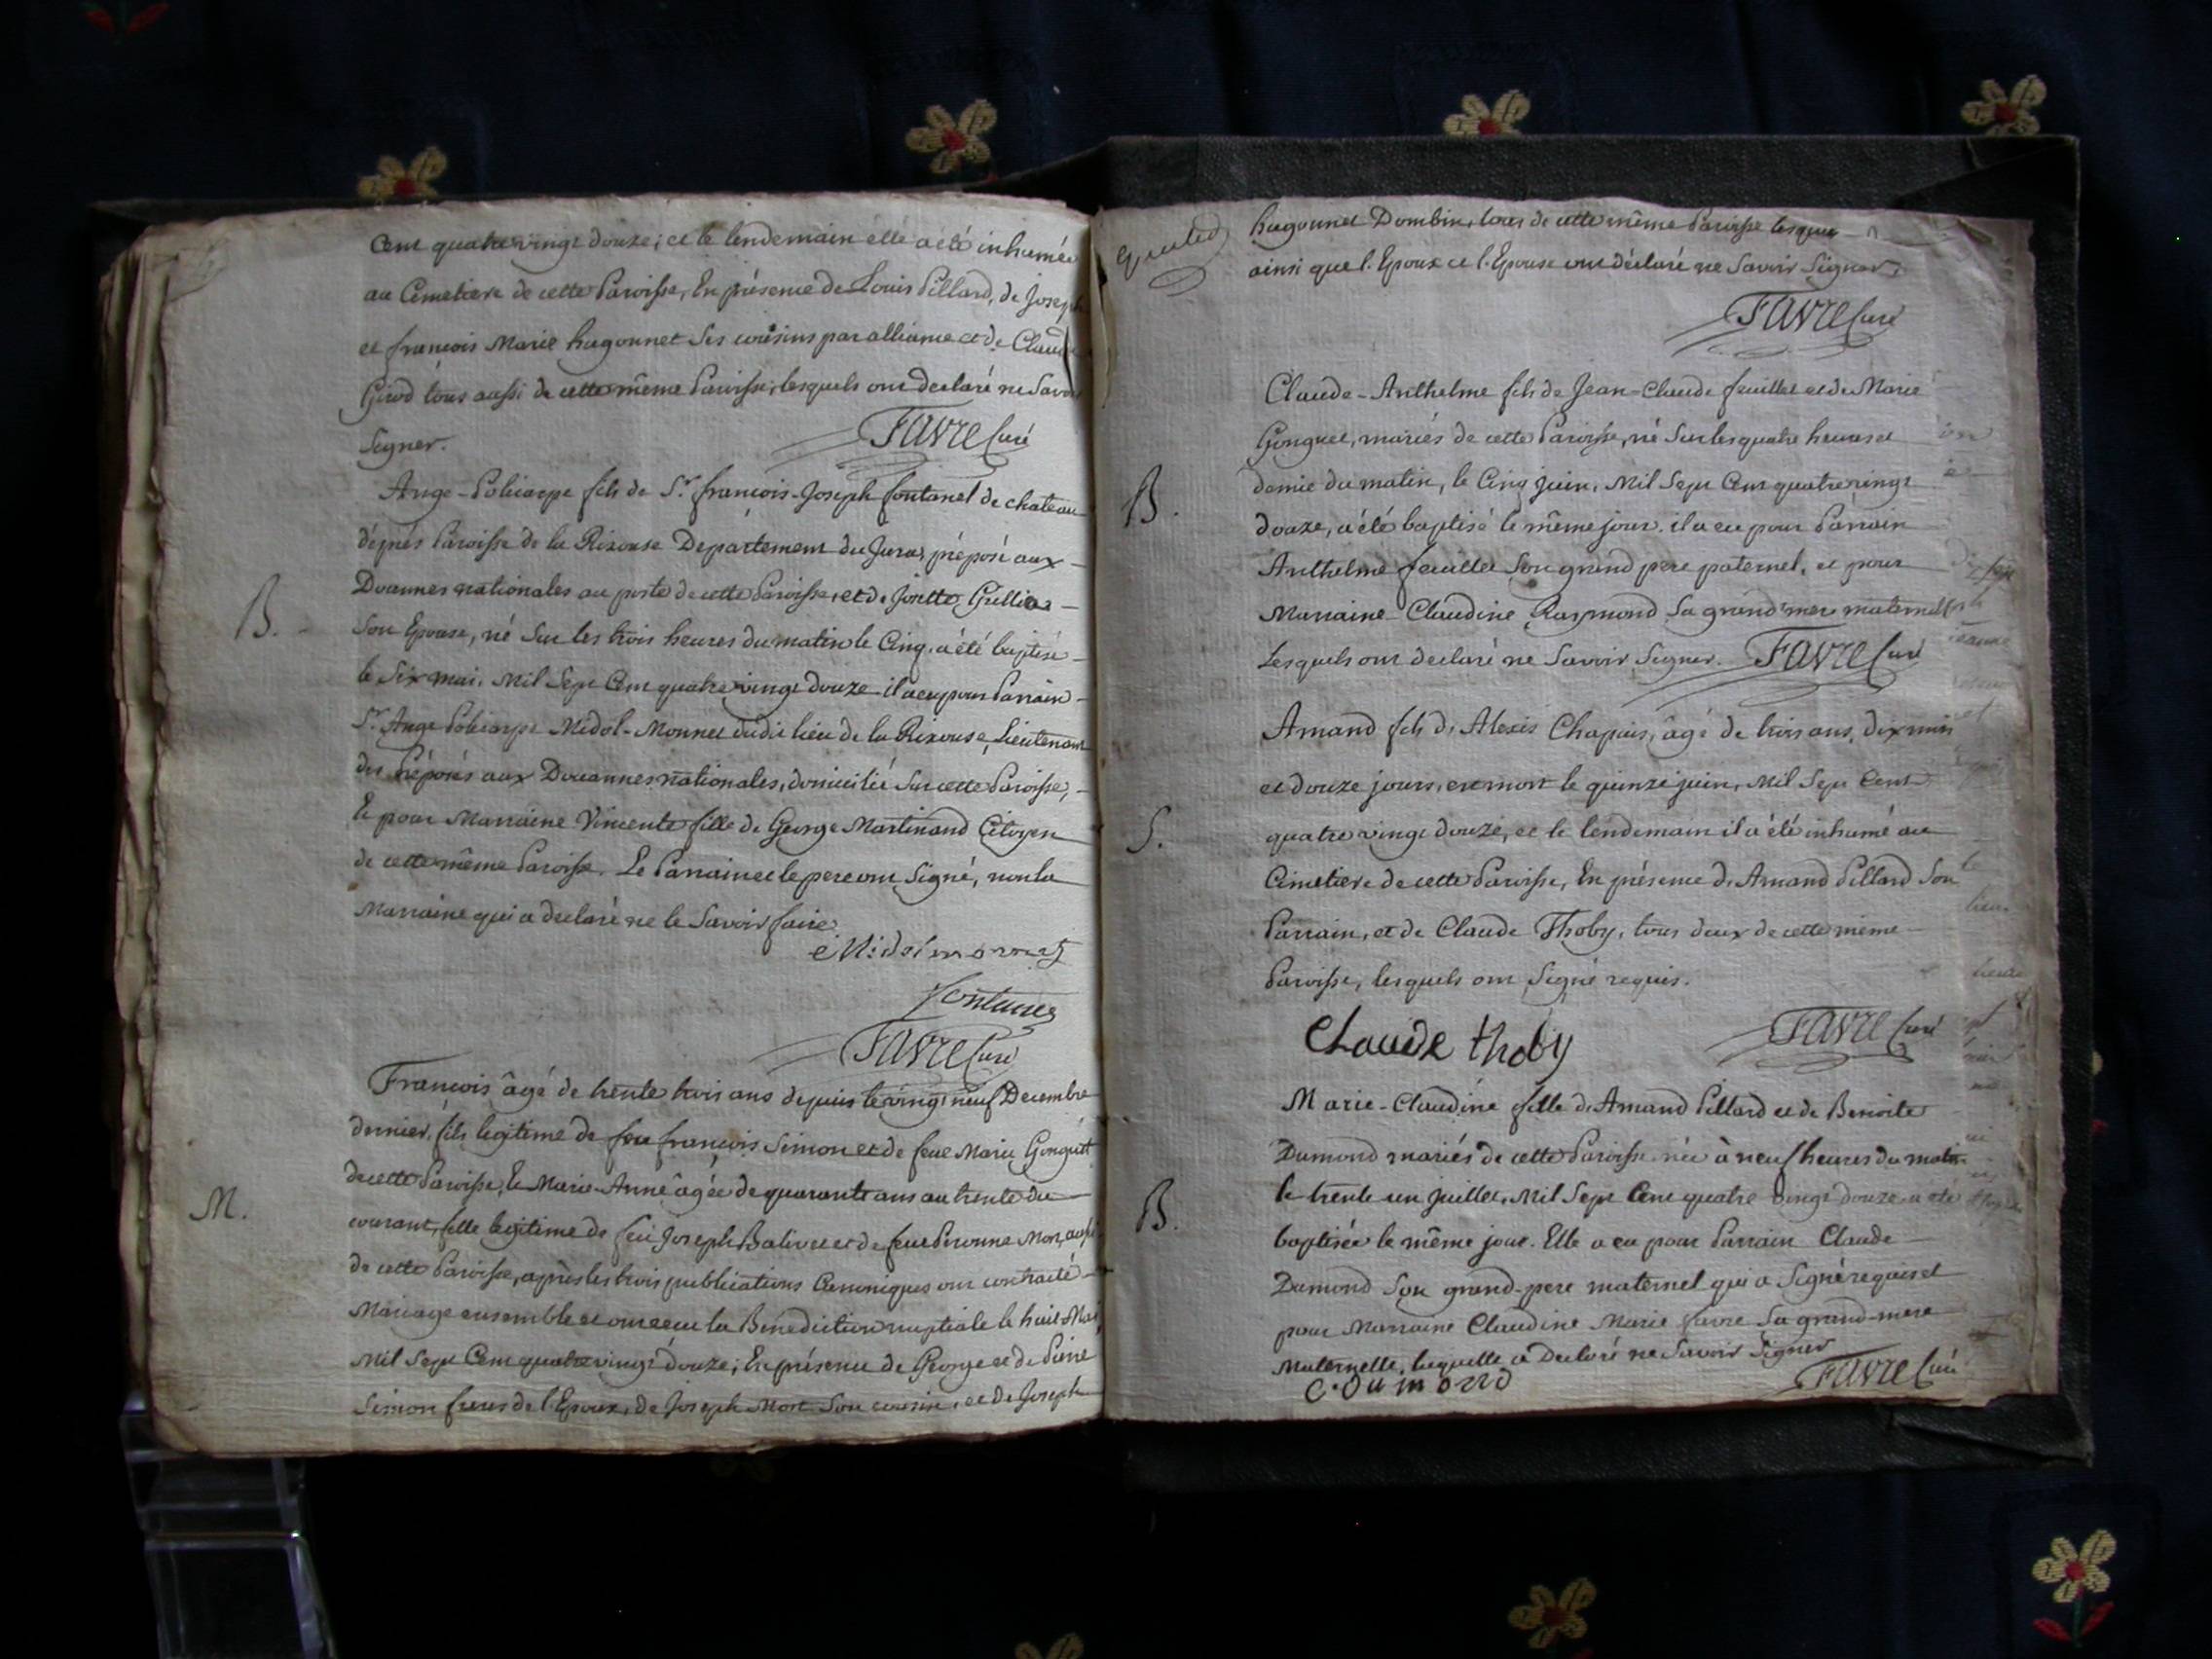 Cent quatre vingt douze; et le lendemain elle a été inhumée
au Cimetiere de cette Paroisse, En présence de Louis Pillard, de Joseph
et françois Marie hugonnet Ses cousins par alliance et de Claude
Girod tous aussi de cette même Paroisse, lesquels ont declaré ne Savoir
Signer.
Favre Curé
B.
Ange-Policarpe fils de Sr. françois-Joseph fontanel de chateau
Paroisse de la Rixouse Departement du Jura, préposé aux
Douannes nationales au poste de cette Paroisse, et de Josette
Son Epouse, né Sur les trois heures du matin le Cinq, a été baptisé
le Six mai, Mil Sept Cent quatre vingt douze il a eu pour Parrain
Sr. Ange Policarpe Midol-Monnet dudit lieu de la Rixouse, Lieutenant
des Préposés aux Douannes nationales, domicilié Sur cette Paroisse,
Et pour Marraine Vincente fille de George Martinand Citoyen
de cette même Paroisse. Le Parrain et le pere ont Signé, non la
Marraine qui a declaré ne le Savoir faire
Favre Curé
M.
François âgé de trente trois ans depuis le vingt neuf Decembre
dernier, fils légitime de feu françois Simon et de feue Marie Gonguet
de cette Paroisse, Et Marie-Anne âgée de quarante ans au trente du
courant, fille légitime de feu Joseph Balivet et de feue Peronne Mort, aussi
de cette Paroisse, après les trois publications Canoniques ont contracté
Mariage ensemble et ont reçu la Bénédiction nuptiale le huit Mai
Mil Sept Cent quatre vingt douze; En présence de George et de Pierre
Simon freres de l'Epoux, de Joseph Mort Son cousin, et de Joseph
hugonnet Dombin, tous de cette même Paroisse lesquels
ainsi que l'Epoux et l'Epouse ont déclaré ne Savoir Signer.
Favre Curé
B.
Claude-Anthelme fils de Jean-Claude feuillet et de Marie
Gonguet, mariés de cette Paroisse, né Sur les quatre heures et
demie du matin, le Cinq juin, Mil Sept Cent quatre vingt
douze, a été baptisé le même jour. il a eu pour Parrain
Anthelme feuillet Son grand pere paternel, et pour
Marraine Claudine Raymond Sa grand'mere maternelle
Lesquels ont declaré ne Savoir Signer. Favre Curé
S.
Amand fils d'Alexis Chapuis, âgé de trois ans, dix mois
et douze jours, est mort le quinze juin, Mil Sept Cent
quatre vingt douze, et le lendemain il a été inhumé au
Cimetiere de cette Paroisse, En présence d'Amand Pillard Son
Parrain, et de Claude Thoby, tous deux de cette même
Paroisse, lesquels ont Signé requis.
Claude thoby
Favre Curé
B.
Marie-Claudine fille d'Amand Pillard et de Benoite
Dumond mariés de cette Paroisse née à neuf heures du matin
le trente un juillet, Mil Sept Cent quatre vingt douze a été
baptisée le même jour. Elle a eu pour Parrain Claude
Dumond Son grand-pere maternel qui a Signé requis et
pour Marraine Claudine Marie favre Sa grand-mere
Maternelle, laquelle a Declaré ne Savoir Signer
C. Dumond
Favre Curé